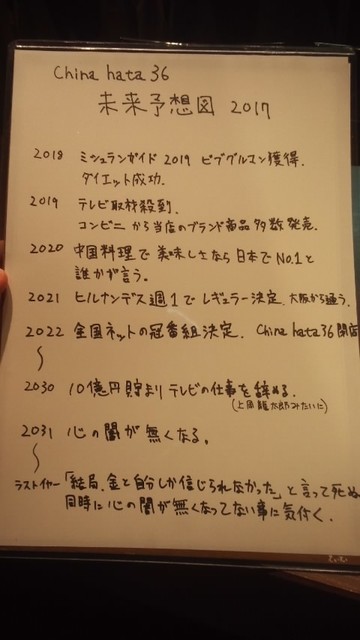 China hata 36
未来予想図 2017
2018 ミシュランガイド 2019 ビブグルマン獲得.
ダイエット成功.
2019 テレビ取材殺到.
コンビニから当店のブランド商品多数発売.
2020 中国料理で美味しさなら日本でNo.1と
誰かが言う。
2021 ヒルナンデス週1でレギュラー決定. 大阪から通う.
2022 全国ネットの冠番組決定. China hata 36 閉店
〜
2030 10億円貯まりテレビの仕事を辞める.
(上岡龍太郎みたいに)
2031 心の闇が無くなる.
〜
ラストイヤー「結局、金と自分しか信じられなかった」と言って死ぬ
同時に心の闇が無くなってない事に気付く.